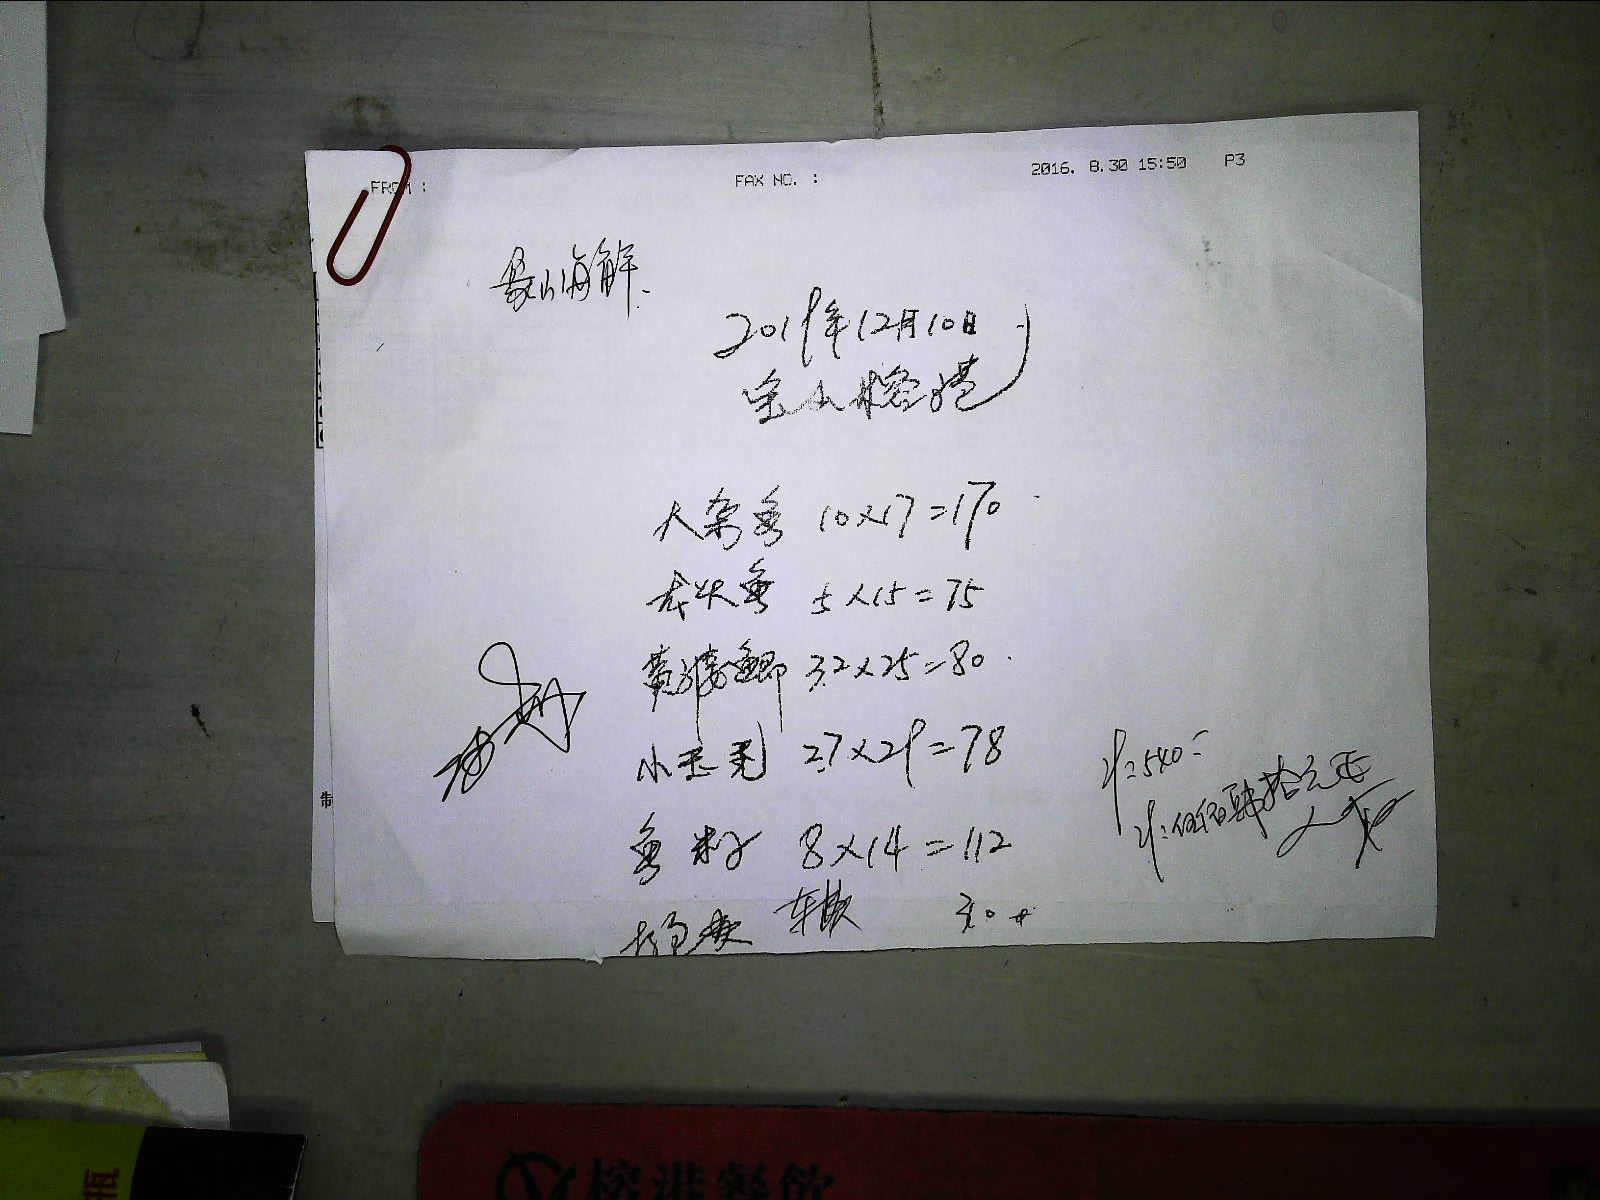 FROM :
FAX NO. :
2016. 8.30 15:50 P3
象山海鲜
2019年12月10日
宝山榕港
大杂鱼 10×17=170
龙头鱼 5×15=75
黄 鲫 3.2×25=80
小 2.7×29=78
鱼籽 8×14=112
车费 30
计:540
计:伍佰肆拾元正
榕港餐飲
瓶